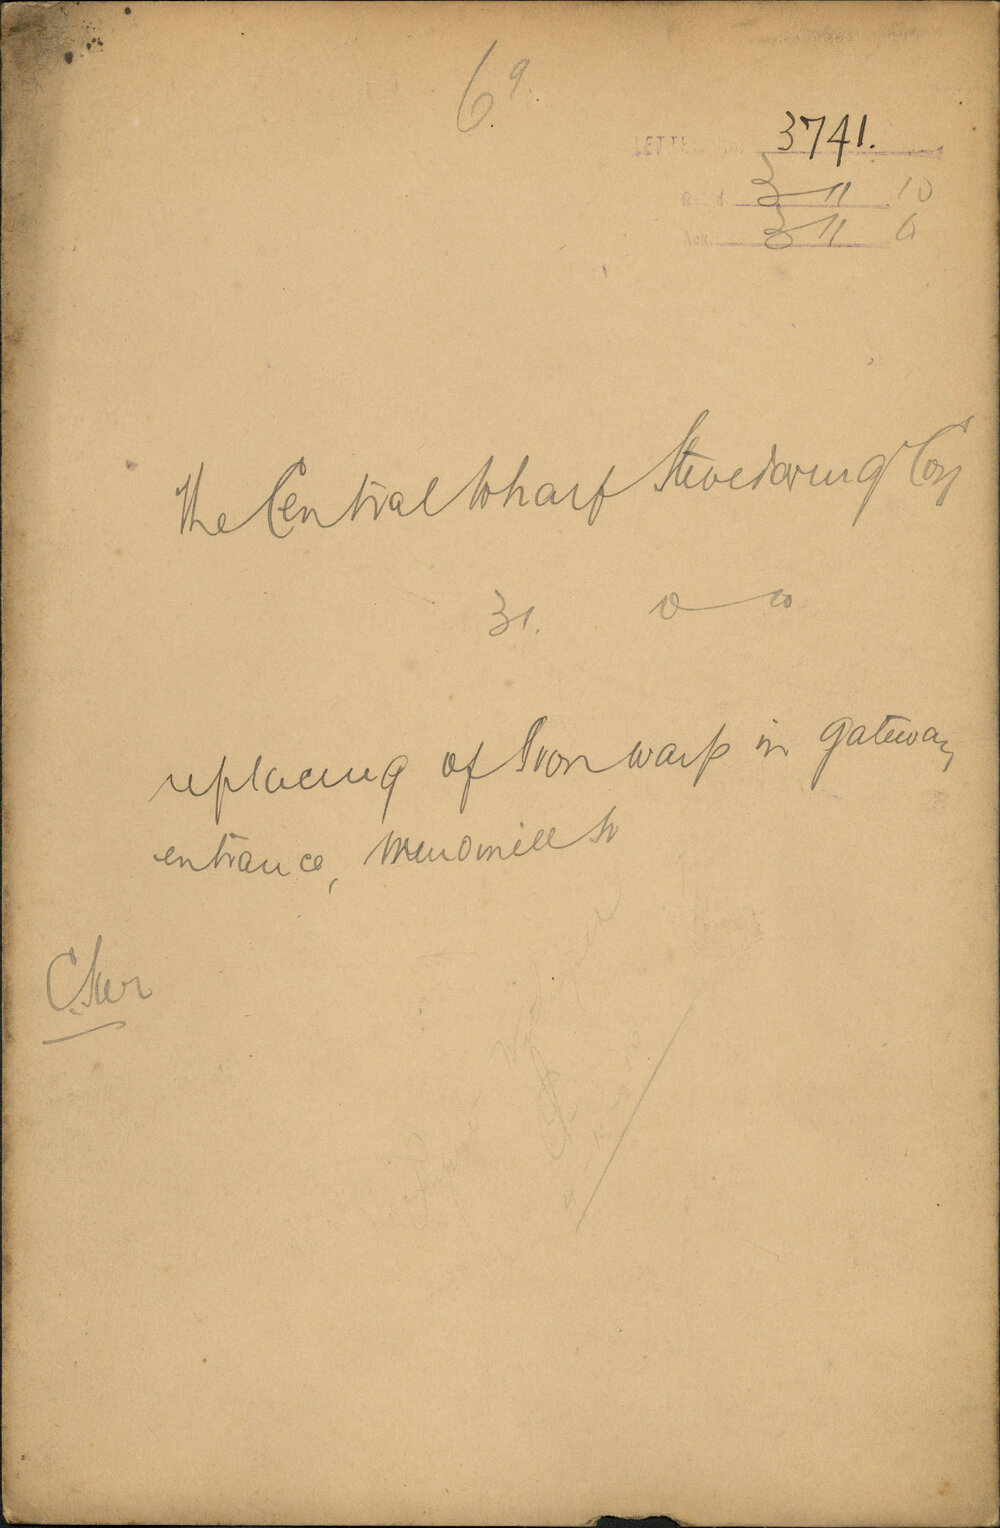 69.
LETTER No. 3741.
Rec'd 3 11 10
Ack. 3 11
The Central Wharf Stevedoring Coy
31. 10 10
replacing of Iron warp in gateway
entrance, Windmill St